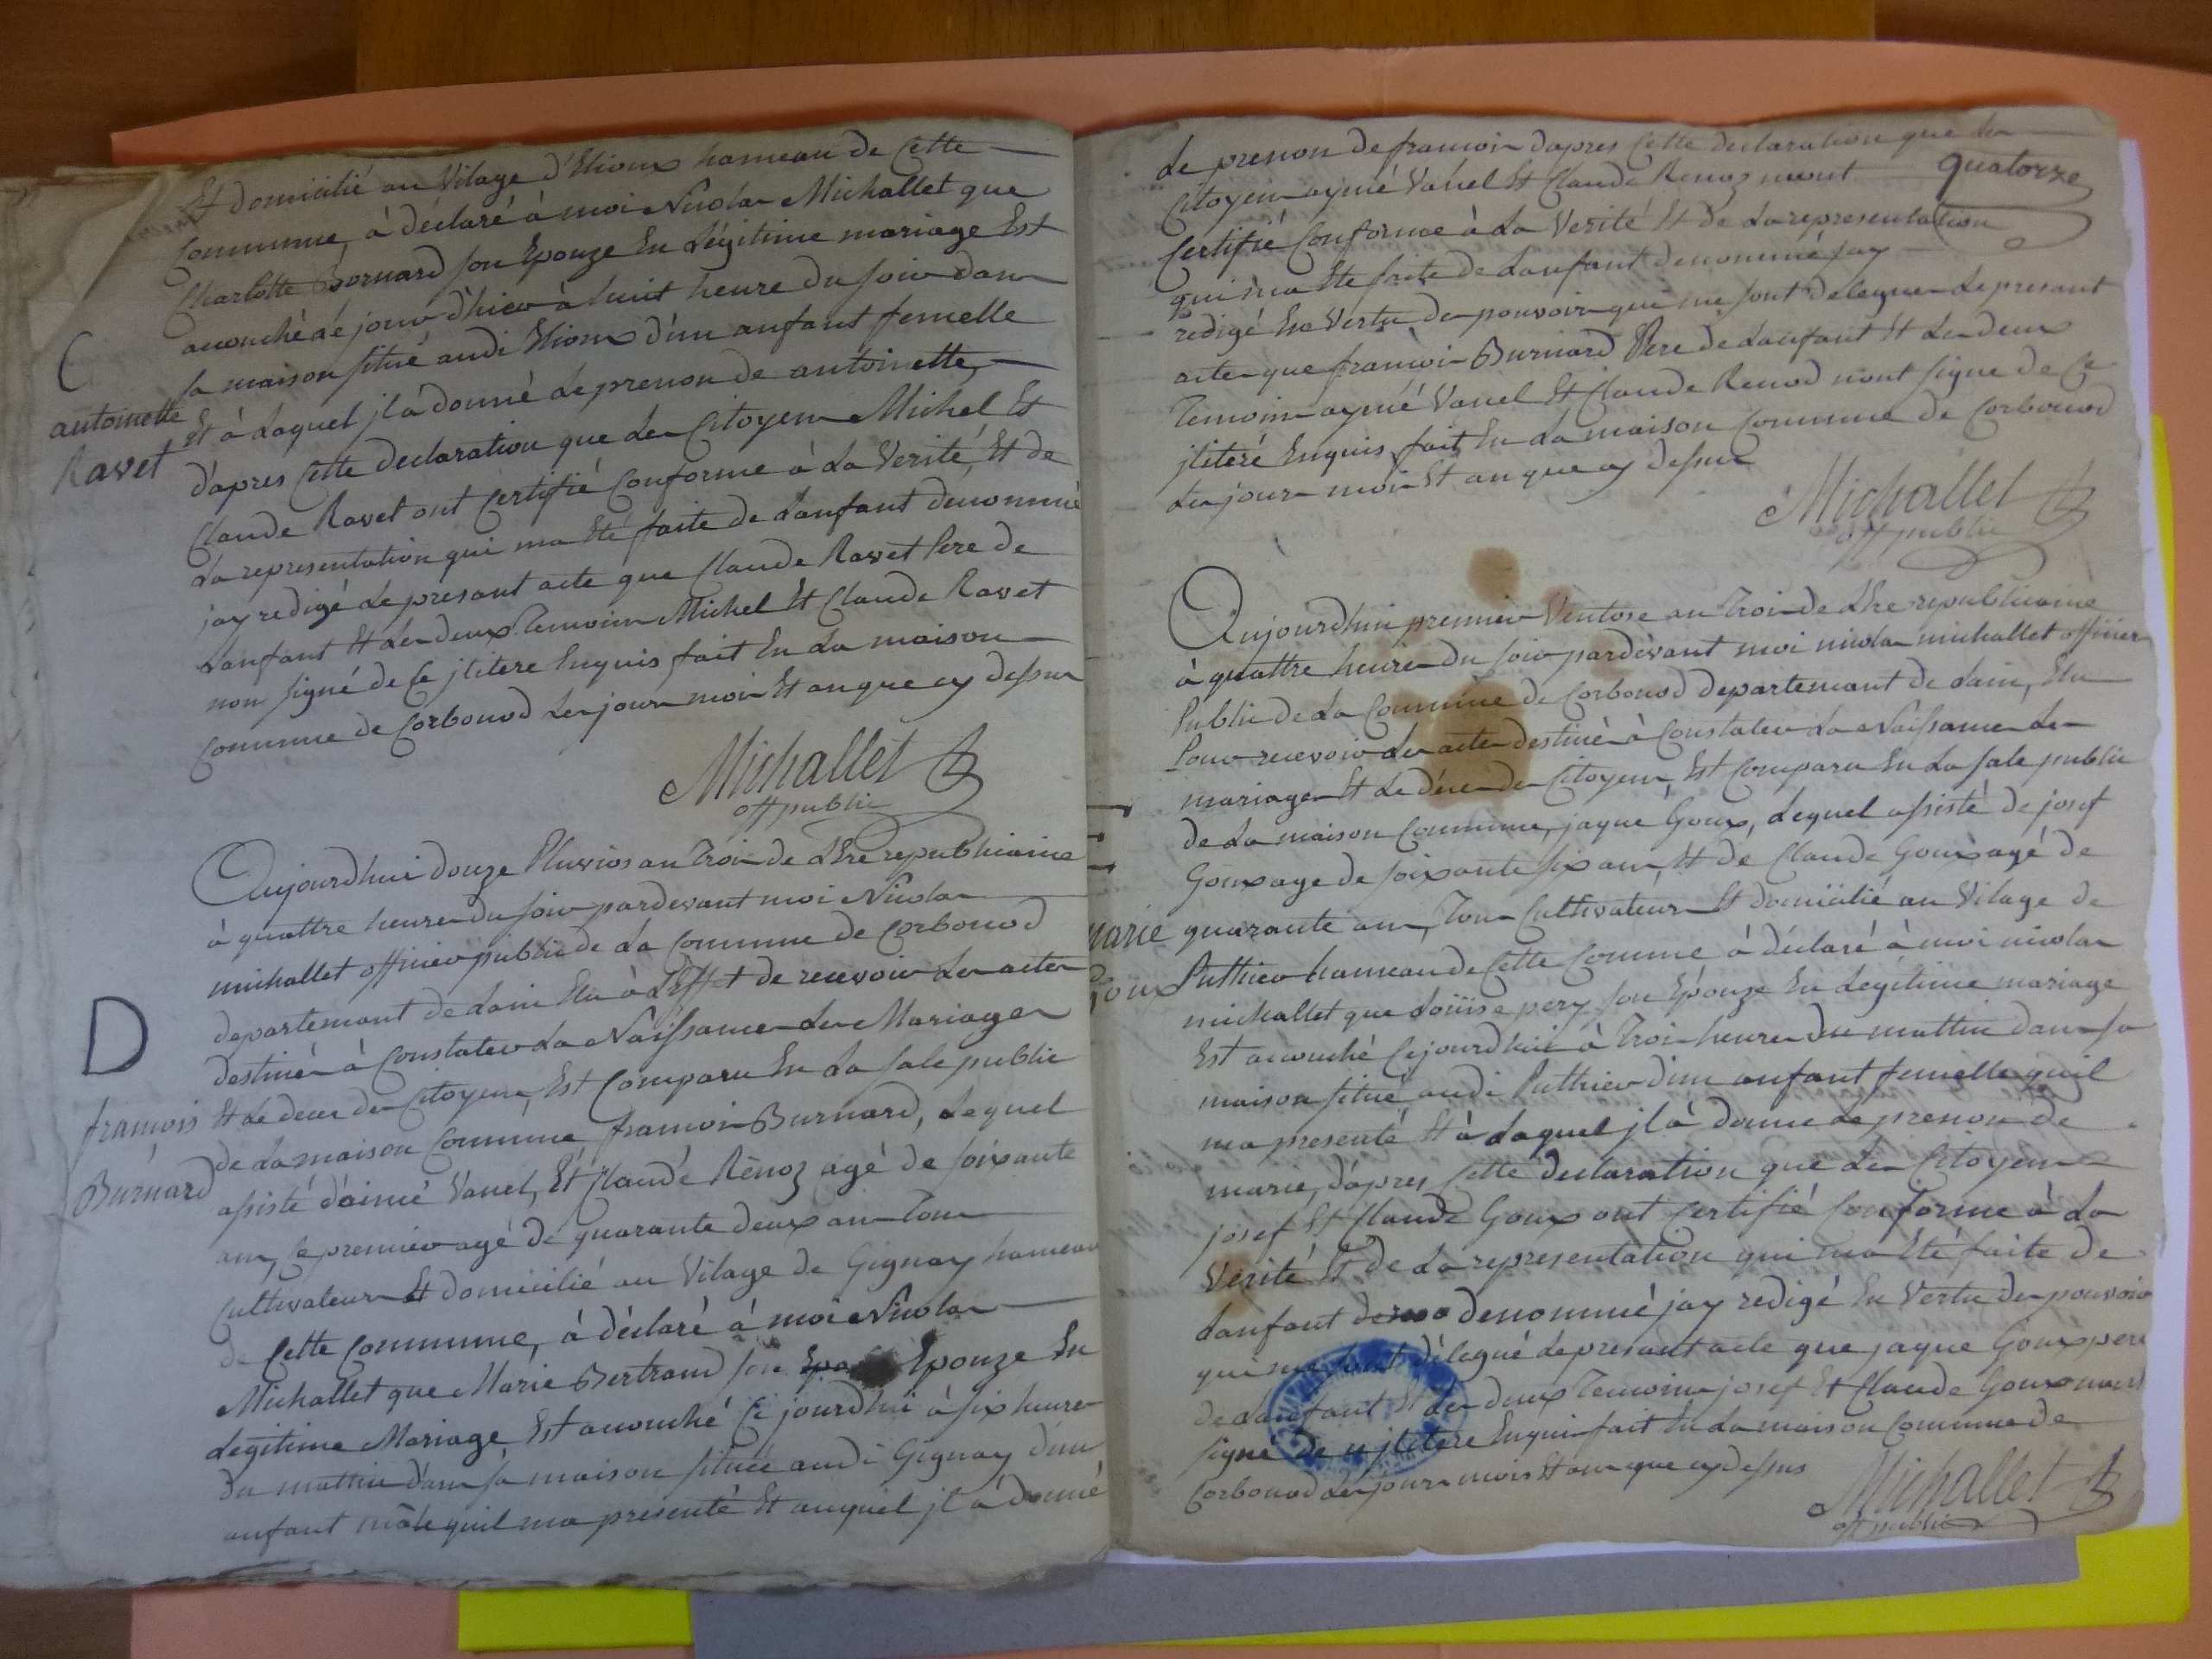 Et domicilié au Vilage d'Etiom hameau de Cette
Commune, à déclaré à moi Nicolas Michallet que
Charlotte Bornard son Epouze En Légitime mariage Est
acouché dé jour d'hier à huit heure du soir dans
sa maison situé audi Etiom d'un anfant femelle
C
antoinette
Ravet
Et à Laquel jl à donné Le prenon de antoinette,
d'apres Cette declaration que Les Citoyens Michel Et
Claude Ravet ont Certifié Conforme à La Verité, Et de
La representation qui ma Eté faite de Lanfant denommé
jay redigé Le presant acte que Claude Ravet Pere de
Lanfant Et Les deux Temoins Michel Et Claude Ravet
non signé de Ce jlitere Enquis, fait En La maison
Commune de Corbonod Les jour mois Et an que cy dessus
Michallet
off public
Aujourdhui douze Pluvios an Trois de LEre republicaine
à quattre heures du soir pardevant moi Nicolas
michallet officier public de La Commune de Corbonod
departemant de Lain Elu à L'Effet de recevoir Les actes
D
destinés à Constater La Naissance Les Mariages
Et Le deces des Citoyens, Est Comparu En La sale public
francois
Burnard
de La maison Commune francois Burnard, Lequel
assisté d'aimé Vanel, Et Claude Rénoz agé de soixante
ans, Le premier agé de quarante deux ans Tous
Cultivateurs Et domicilié au Vilage de Gignay hameau
de Cette Commune, à déclaré à moi Nicolas
Michallet que Marie Bertrand son Epouze En
Legitime Mariage Est acouché Ce jourdhui à six heures
du mattin dans sa maison située audi Gignay d'un
anfant mâle quil ma presenté Et auquel jl à donné
Le prenon de francois dapres Cette declaration que Les
quatorze
Citoyens aymé Vanel Et Claude Renoz mont
Certifié Conforme à La Verité Et de La representation
qui ma Ete faite de Lanfant denommé jay
redigé En Vertu des pouvoirs qui me sont deleguer Le presant
acte que francois Burnard Pere de Lanfant Et Les deux
Temoins aymé Vanel Et Claude Renod nont signe de Ce
jliteré Enquis, fait En La maison Commune de Corbonod
Les jours mois Et an que cy dessus
Michallet
off public
Aujourdhui premier Ventose an Trois de LEre republicaine
à quattre heures du soir pardevant moi nicolas michallet officier
Public de La Commune de Corbonod departemant de Lain, Elu
Pour recevoir Les actes destiné à Constater La Naissance Les
mariages Et Le déces des Citoyens, Est Comparu En La sale public
de La maison Commune, jaque Goux, Lequel assisté de josef
Goux age de soixante six ans, Et de Claude Goux agé de
marie
Goux
quarante ans, Tous Cultivateurs Et domicilié au Vilage de
Puthier hameau de Cette Comme à déclaré à moi nicolas
michallet que Loüise pery son Epouze En Legitime mariage
Est acouché Cejourdhui à Trois heures du mattin dans sa
maison situé audi Puthier dun anfant femelle quil
ma presenté Et à Laquel jl à donné Le prenon de
marie, d'apres Cette declaration que Les Citoyens
josef Et Claude Goux ont Certifié Conforme à La
Verité Et de La representation qui ma Eté faite de
Lanfant denommé jay redigé En Vertu des pouvoirs
qui me sont délegué Le presant acte que jaque Goux pere
de Lanfant Et Les deux Temoins josef Et Claude Goux nont
signé de ce jlitere Enquis fait En La maison Commune de
Corbonod Les jours mois Et an que cy dessus
Michallet
off public